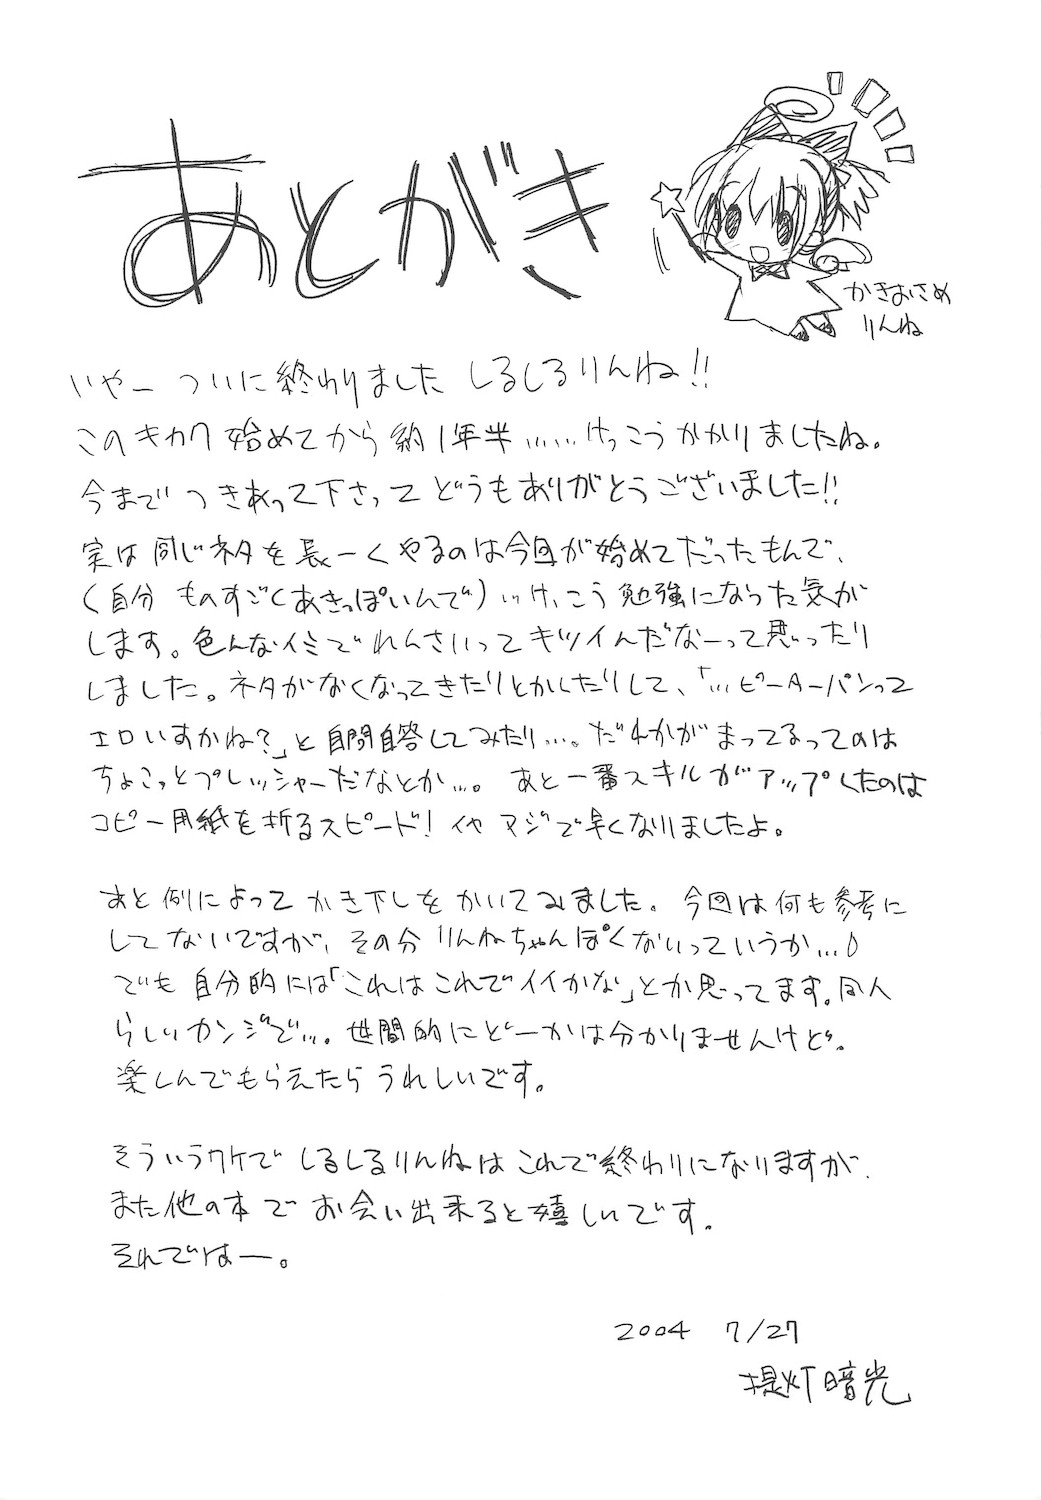 あとがき
かきおさめ
りんね
いやー ついに終わりました しるしるりんね!!
このキカク始めてから約1年半……けっこうかかりましたね。
今までつきあって下さってどうもありがとうございました!!
実は同じネタを長ーくやるのは今回が始めてだったもんで、
(自分 ものすごくあきっぽいんで)…けっこう勉強になった気が
します。色んなイミでれんさいってキツイんだなーって思ったり
しました。ネタがなくなってきたりとかしたりして、「…ピーターパンって
エロいすかね?」と自問自答してみたり…。だれかがまってるってのは
ちょこっとプレッシャーだなとか…。あと一番スキルがアップしたのは
コピー用紙を折るスピード! イヤ マジで早くなりましたよ。
あと例によってかき下しをかいてみました。今回は何も参考に
してないですが、その分りんねちゃんぽくないっていうか…
でも自分的には「これはこれでイイかな」とか思ってます。同人
らしいカンジで…。世間的にどーかは分かりませんけど。
楽しんでもらえたらうれしいです。
そういうワケでしるしるりんねはこれで終わりになりますが、
また他の本でお会い出来ると嬉しいです。
それではー。
2004 7/27
提灯暗光